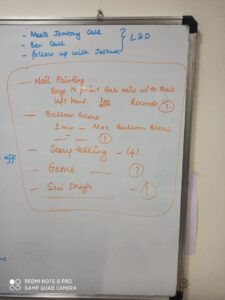 - Meets Jombay Call
- Ben Call } LSD
- follow up with Jashua
- Nail Painting
Boys to paint Gals nails with their
left hand
- Balloon Game
1 min - Max Balloon Blow
- Story telling - (4)
- Gems
REDMI NOTE 8 PRO
64MP QUAD CAMERA